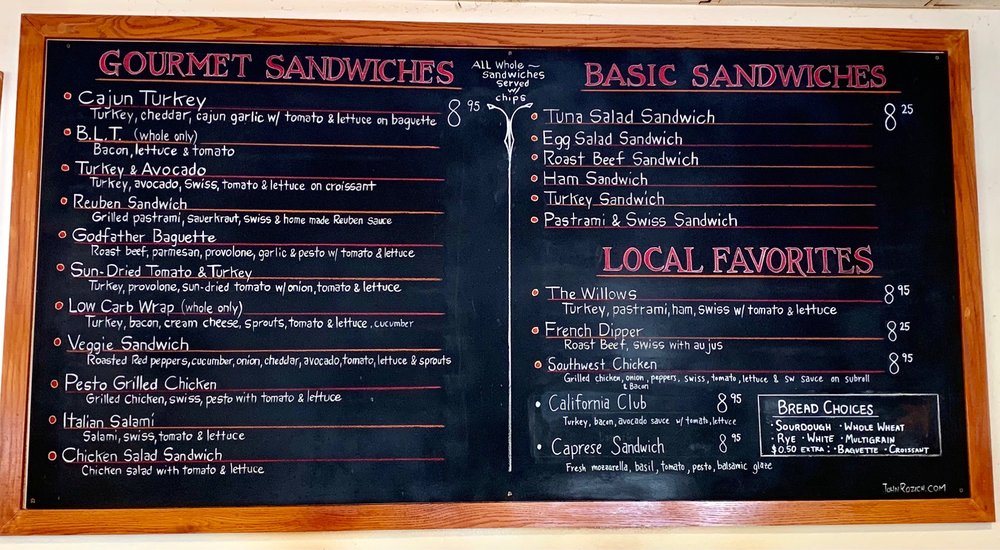 GOURMET SANDWICHES
Cajun Turkey 8 95
Turkey, cheddar, cajun garlic w/ tomato & lettuce on baguette
B.L.T. (whole only)
Bacon, lettuce & tomato
Turkey & Avocado
Turkey, avocado, swiss, tomato & lettuce on croissant
Reuben Sandwich
Grilled pastrami, sauerkraut, swiss & home made Reuben sauce
Godfather Baguette
Roast beef, parmesan, provolone, garlic & pesto w/ tomato & lettuce
Sun-Dried Tomato & Turkey
Turkey, provolone, sun-dried tomato w/ onion, tomato & lettuce
Low Carb Wrap (whole only)
Turkey, bacon, cream cheese, sprouts, tomato & lettuce, cucumber
Veggie Sandwich
Roasted Red peppers, cucumber, onion, cheddar, avocado, tomato, lettuce & sprouts
Pesto Grilled Chicken
Grilled Chicken, swiss, pesto with tomato & lettuce
Italian Salami
Salami, swiss, tomato & lettuce
Chicken Salad Sandwich
Chicken salad with tomato & lettuce
All Whole
Sandwiches
Served
w/
chips
BASIC SANDWICHES
Tuna Salad Sandwich 8 25
Egg Salad Sandwich
Roast Beef Sandwich
Ham Sandwich
Turkey Sandwich
Pastrami & Swiss Sandwich
LOCAL FAVORITES
The Willows 8 95
Turkey, pastrami, ham, swiss w/ tomato & lettuce
French Dipper 8 25
Roast Beef, swiss with au jus
Southwest Chicken 8 95
Grilled chicken, onion, peppers, swiss, tomato, lettuce & sw sauce on subroll
& Bacon
California Club 8 95
Turkey, bacon, avocado sauce w/ tomato, lettuce
Caprese Sandwich 8 95
Fresh mozzarella, basil, tomato, pesto, balsamic glaze
BREAD CHOICES
· SOURDOUGH · WHOLE WHEAT
· RYE · WHITE · MULTIGRAIN
$0.50 EXTRA: · BAGUETTE · CROISSANT
JOHNROZICH.COM